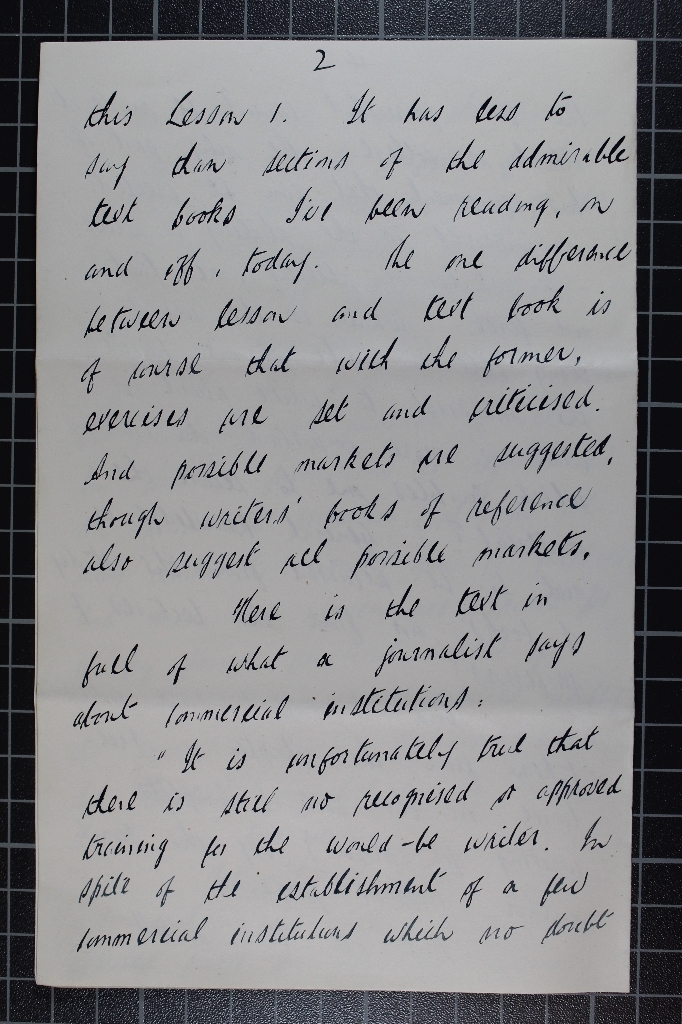 2
this Lesson 1. It has less to
say than sections of the admirable
text books I've been reading, on
and off, today. The one difference
between lesson and text book is
of course that with the former,
exercises are set and criticised.
And possible markets are suggested,
though writers' books of reference
also suggest all possible markets.
Here is the text in
full of what a journalist says
about commercial institutions:
"It is unfortunately true that
there is still no recognised or approved
training for the would-be writer. In
spite of the establishment of a few
commercial institutions which no doubt